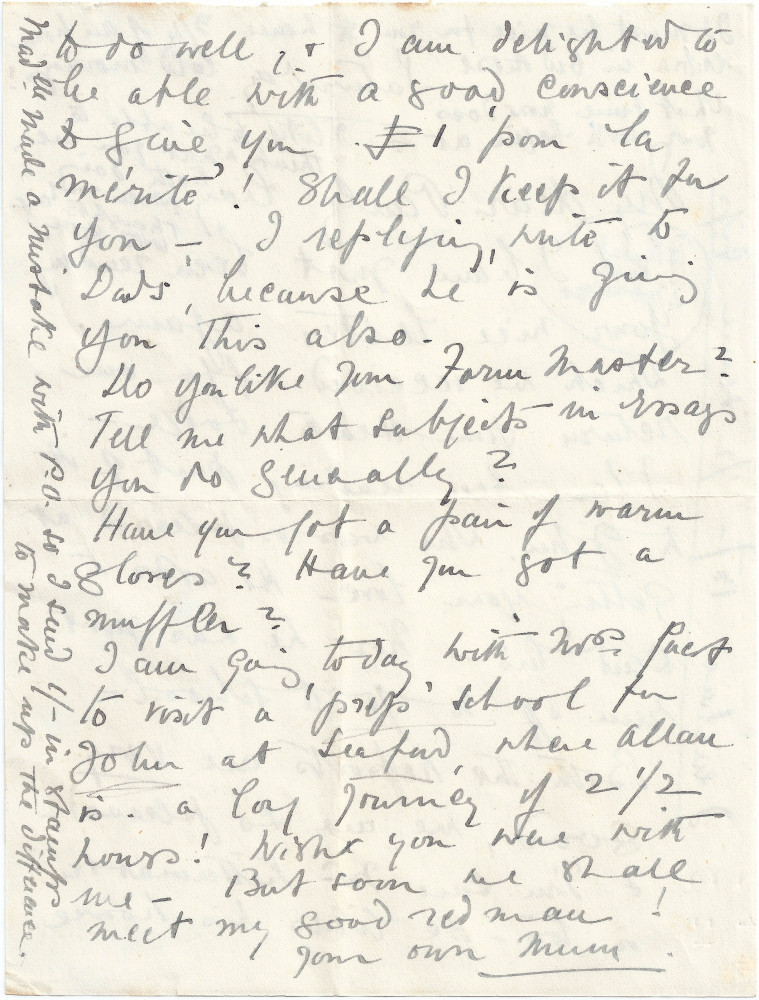 to do well, & I am delighted to
be able with a good conscience
to give you £1 'pour la
mérite'! Shall I keep it for
you – I replying, write to
Dads, because he is giving
you this also.
Do you like your Form Master?
Tell me what subjects in Essays
you do generally?
Have you got a pair of warm
gloves? Have you got a
muffler?
I am going today with Mrs
to visit a 'prep' school for
John at Seaford, where Allan
is. a long journey of 2 1/2
hours! Wish you were with
me – But soon we shall
meet my good red man!
Your own Mum.
Madelle made a mistake with P.O. so I send 1/- in stamps
to make up the difference.